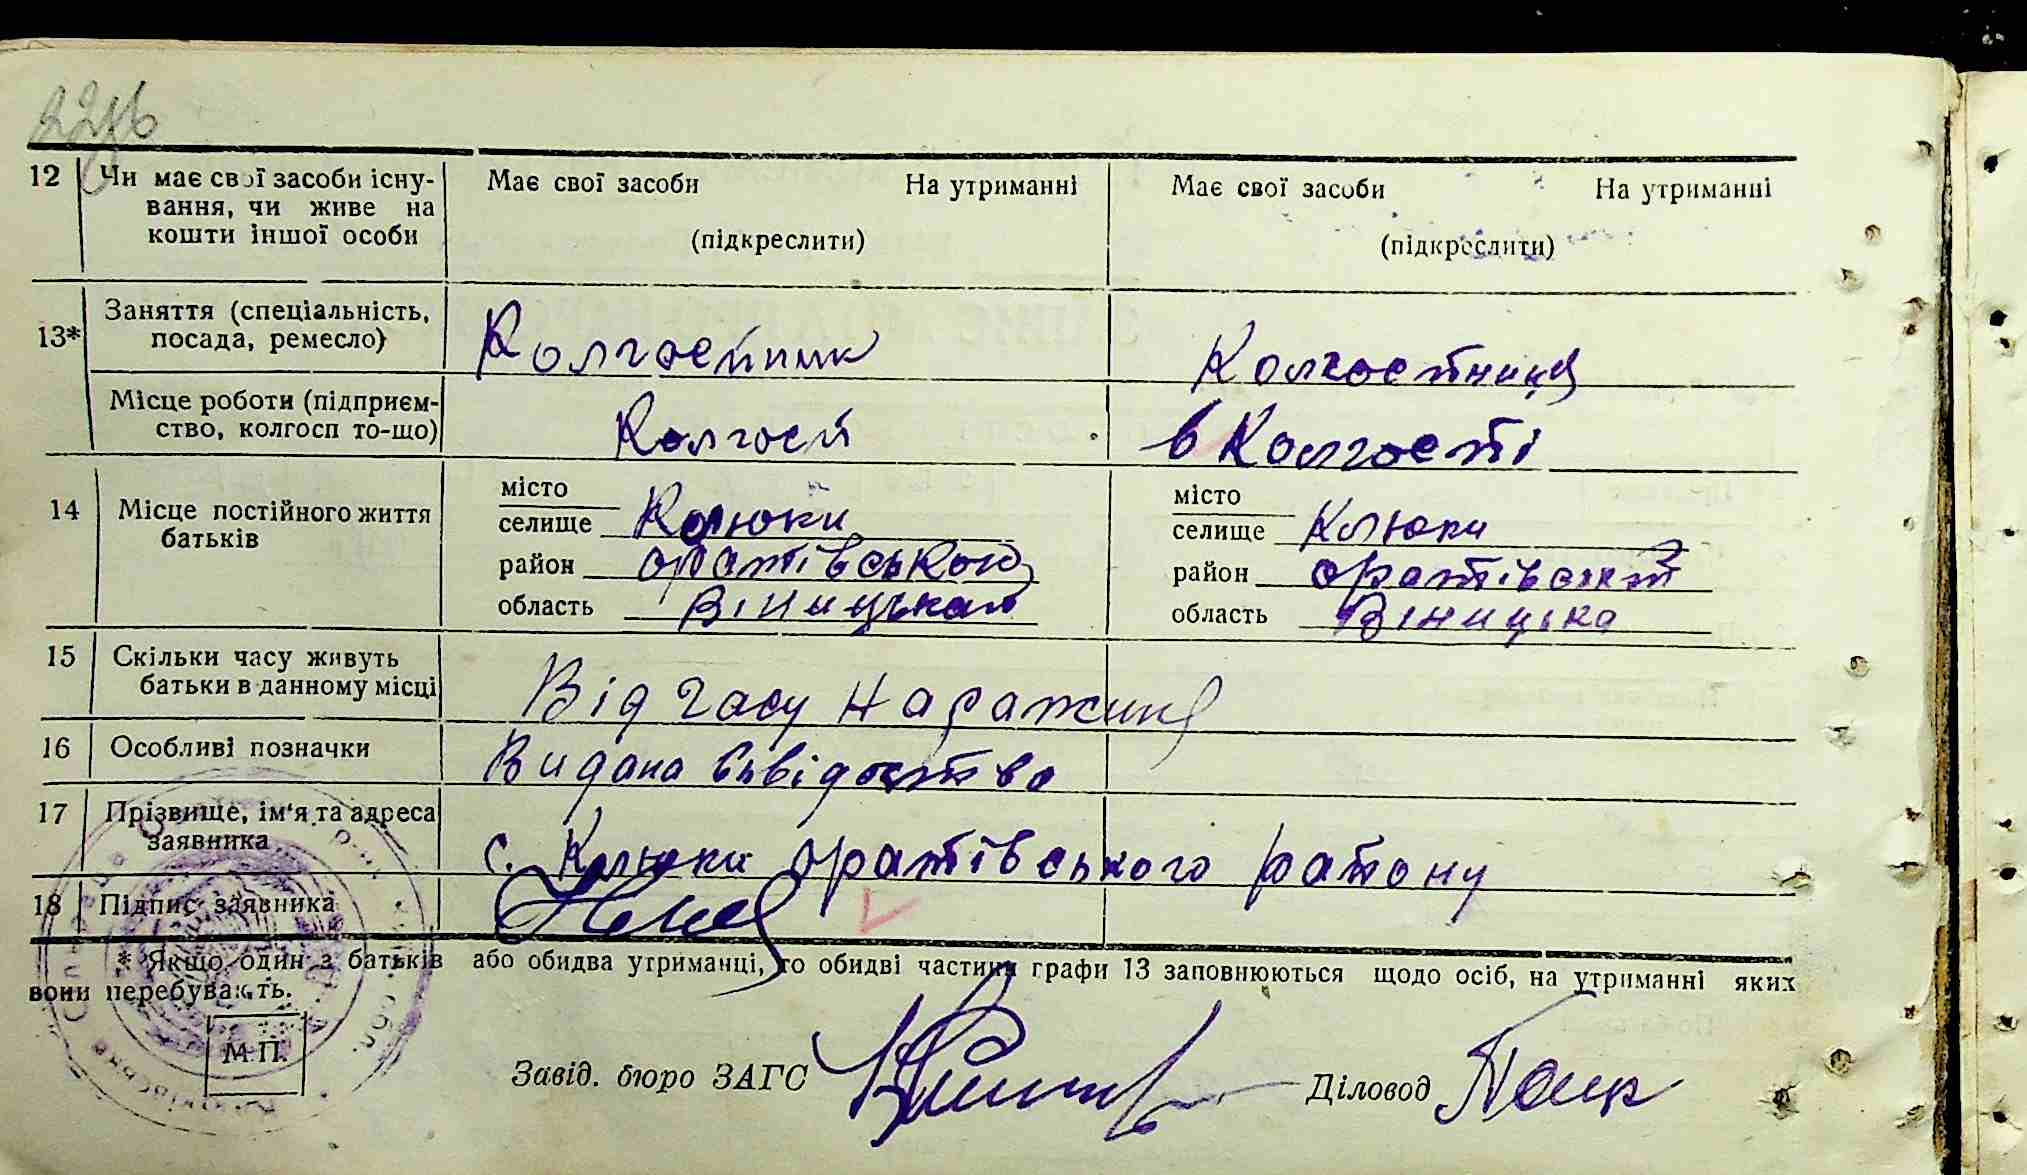 12 Чи має свої засоби існу- Має свої засоби На утриманні Має свої засоби На утриманні
вання, чи живе на
кошти іншої особи (підкреслити) (підкреслити)
13* Заняття (спеціальність,
посада, ремесло) Колгоспник Колгоспниця
Місце роботи (підприєм-
ство, колгосп то-що) Колгосп в Колгоспі
14 Місце постійного життя
батьків
місто місто
селище Колюки селище Колюки
район оратівського район
область Вініцькая область Вініцька
15 Скільки часу живуть
батьки в данному місці Від часу народжиня
16 Особливі позначки Видана
17 Прізвище, ім'я та адреса
заявника с. Колюки оратівського району
18 Підпис заявника
* Якщо один з батьків або обидва утриманці, то обидві частини графи 13 заповнюються щодо осіб, на утриманні яких
вони перебувають.
М.П.
Завід. бюро ЗАГС Діловод